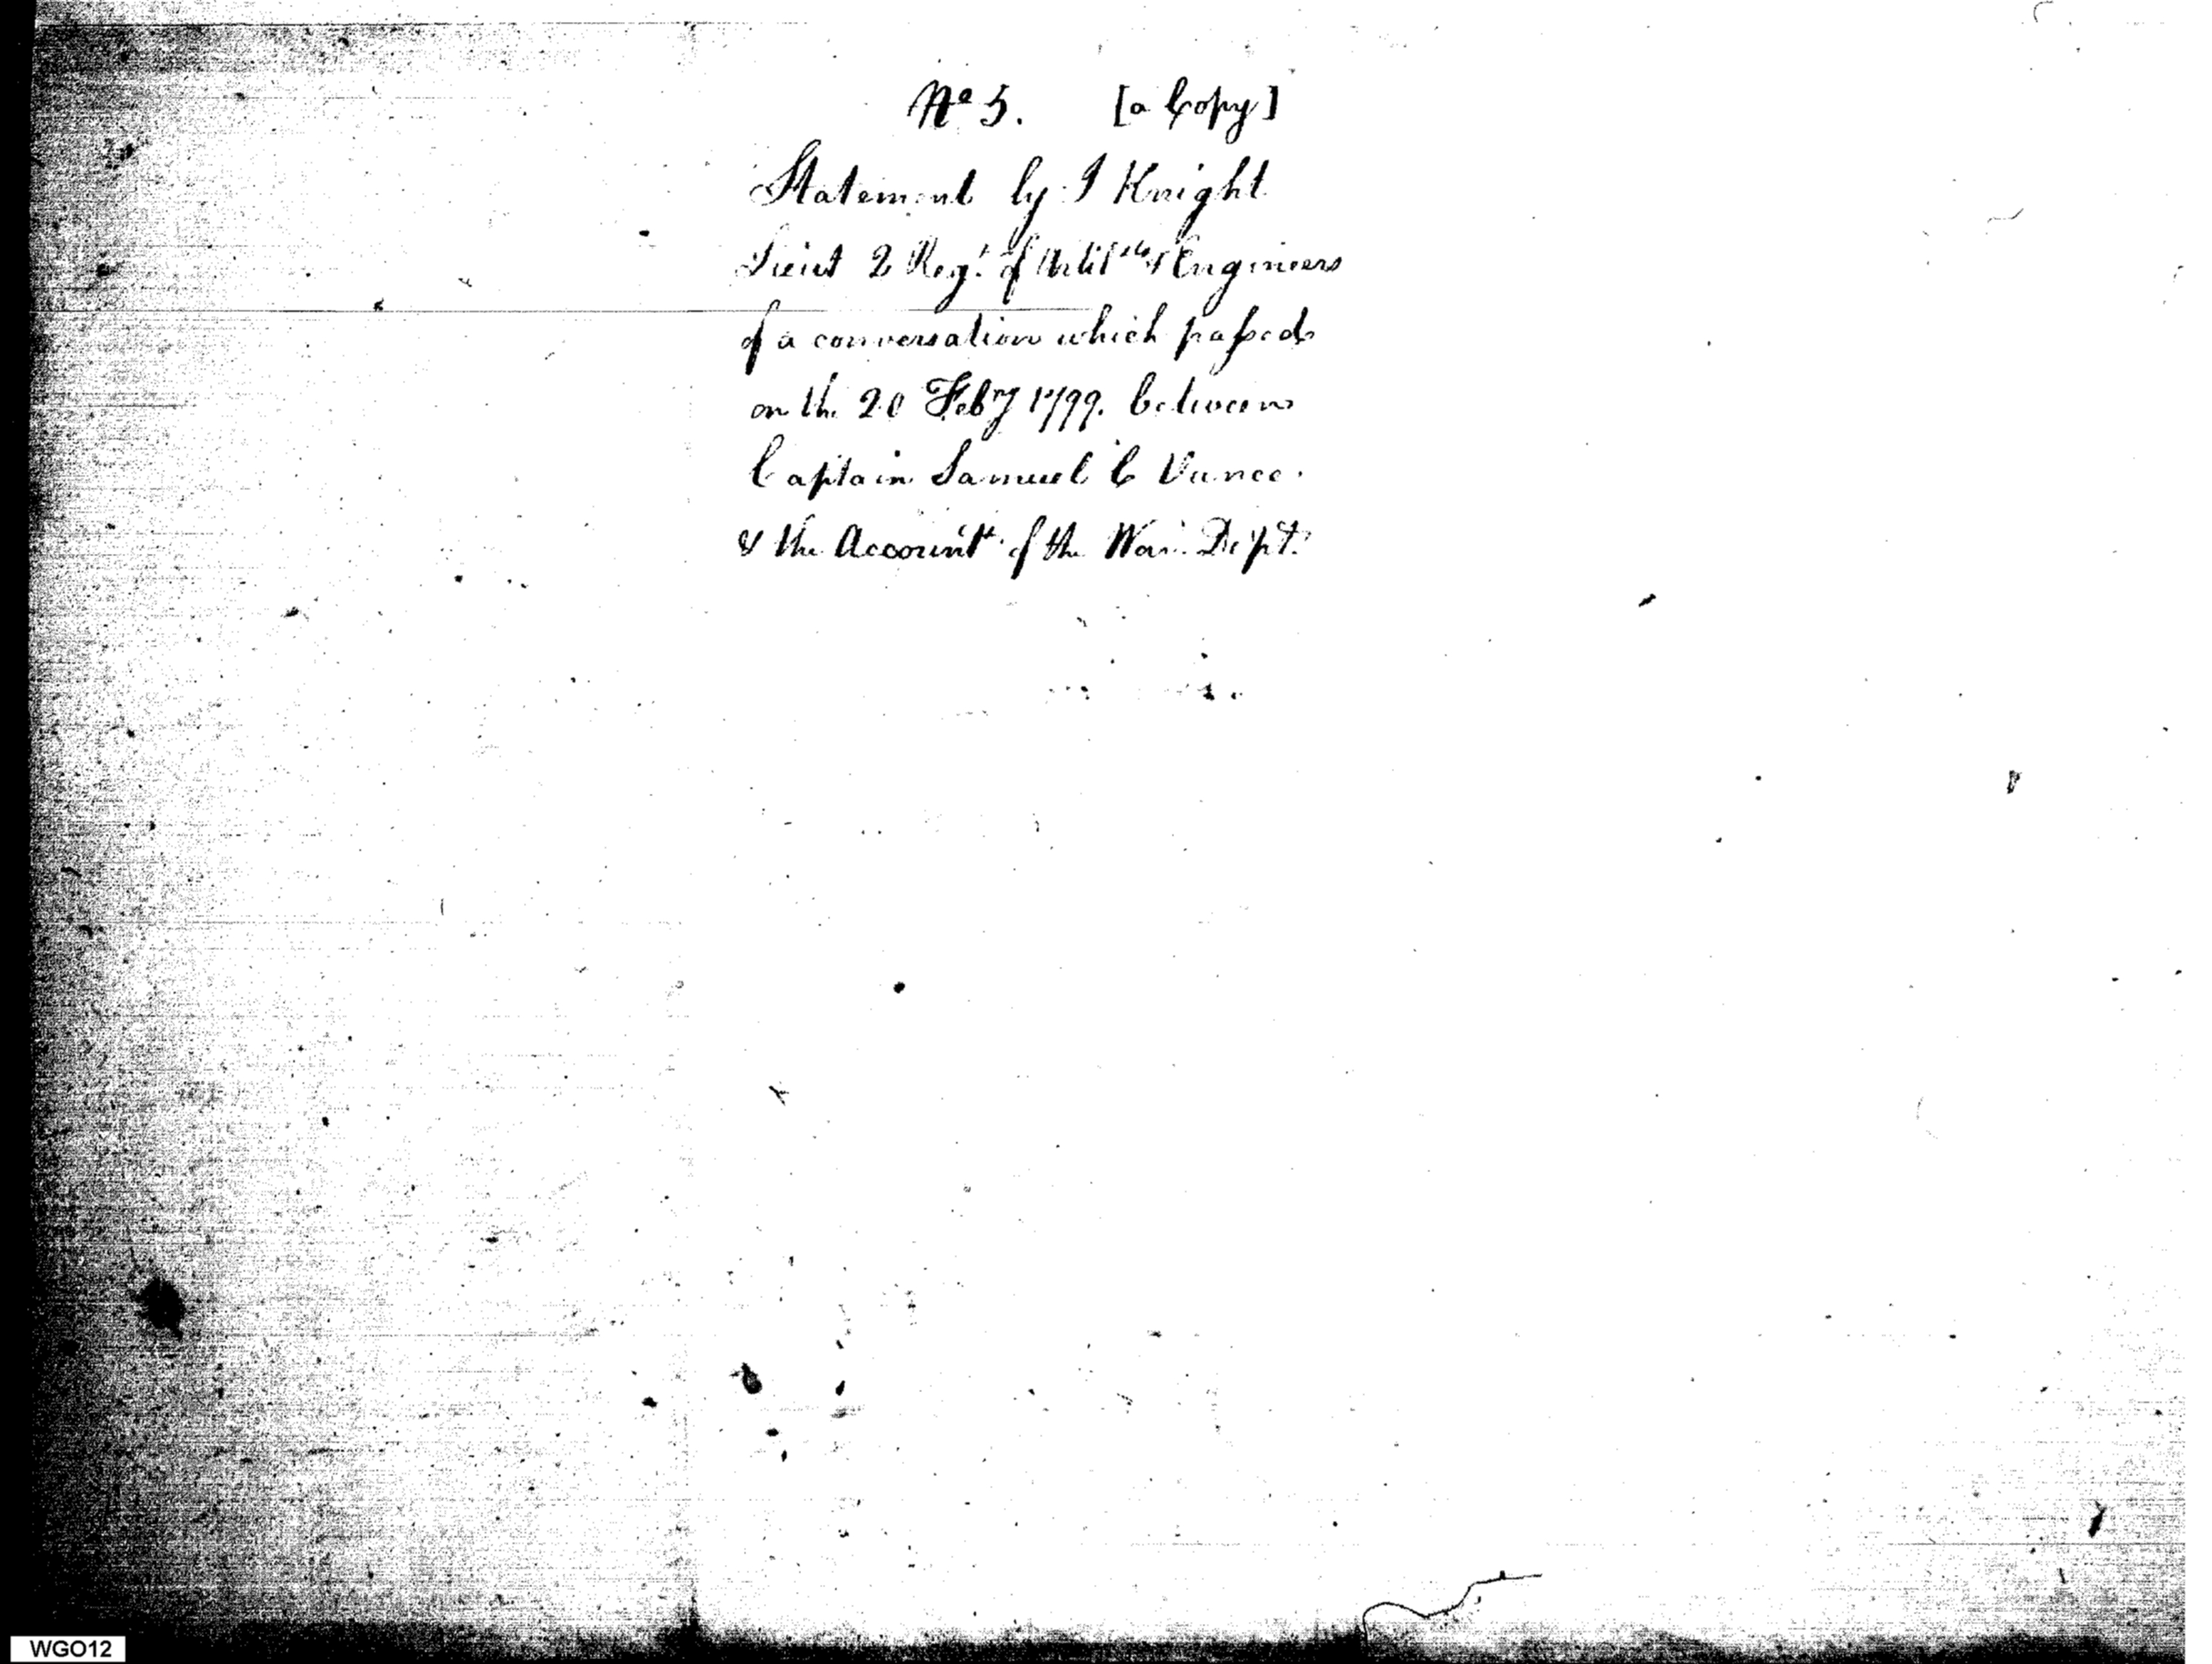 No 5. [a Copy]
Statement by J Knight
Lieut 2 Regt. of Artil & Engineers
of a conversation which passed
on the 20 Feby 1799. between
Captain Samuel C Vance.
& the Accountt. of the War Dept.
WGO12